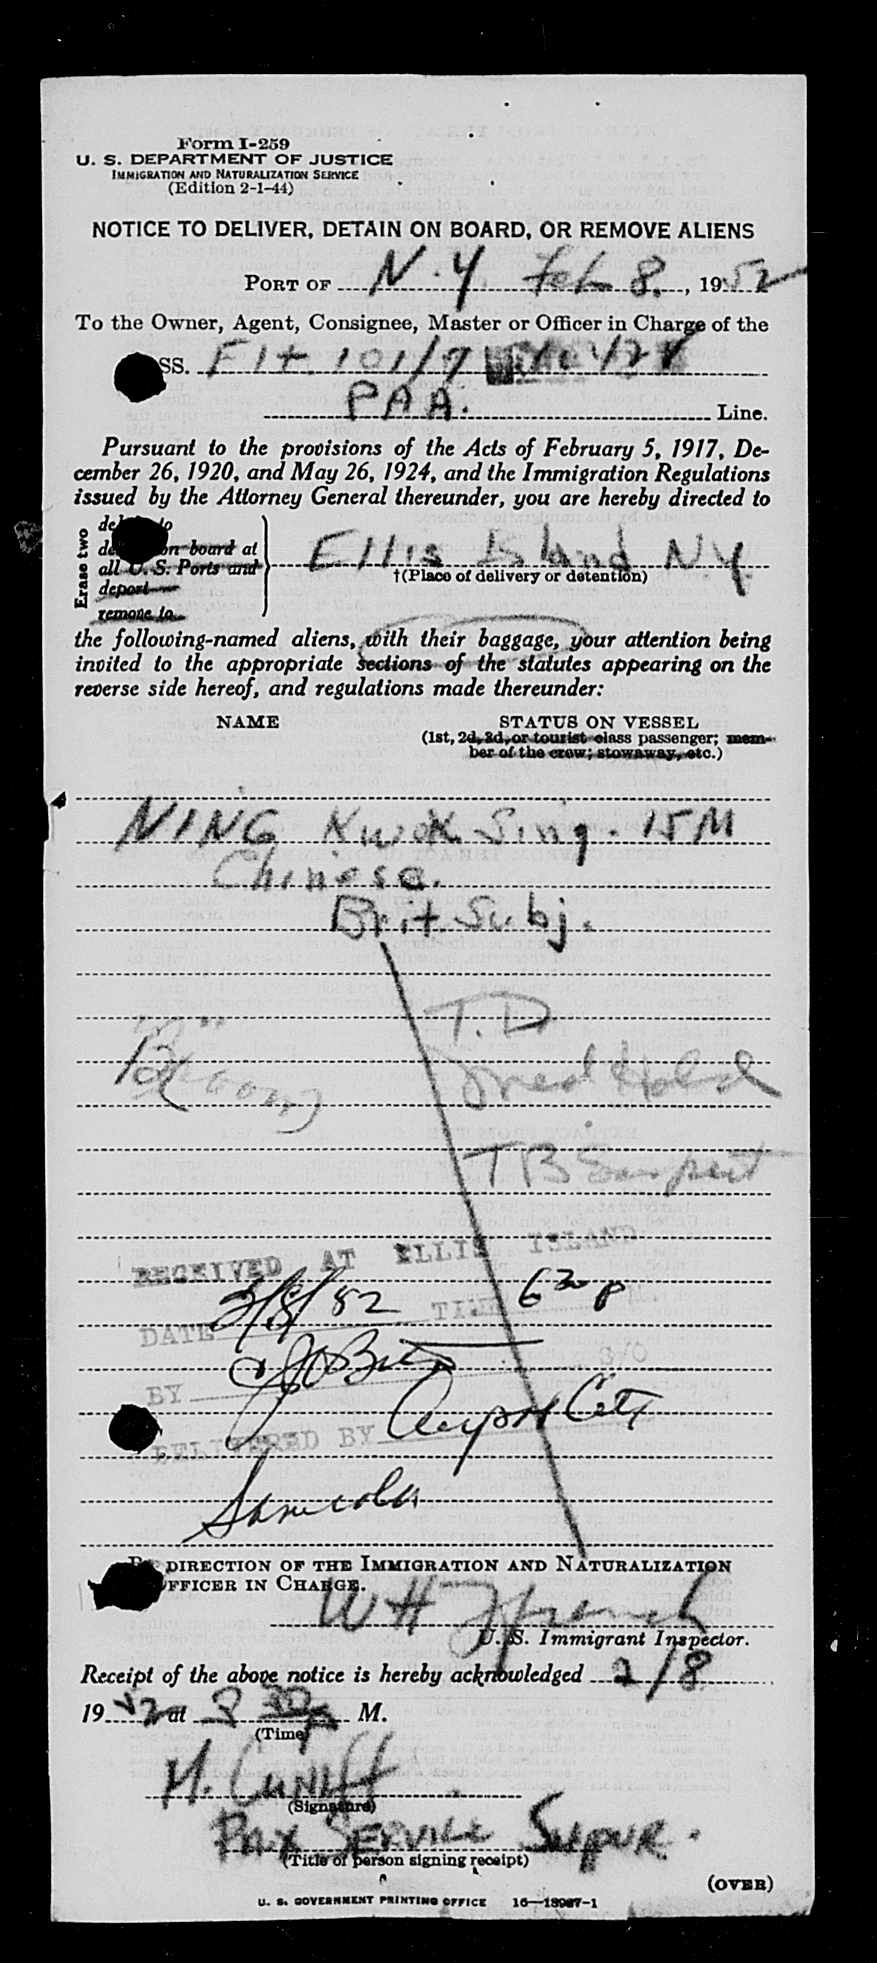 Form I-259
U. S. DEPARTMENT OF JUSTICE
IMMIGRATION AND NATURALIZATION SERVICE
(Edition 2-1-44)
NOTICE TO DELIVER, DETAIN ON BOARD, OR REMOVE ALIENS
PORT OF N.Y. Feb 8, 1952
To the Owner, Agent, Consignee, Master or Officer in Charge of the
SS. Flt. 101/7
PAA. Line.
Pursuant to the provisions of the Acts of February 5, 1917, De-
cember 26, 1920, and May 26, 1924, and the Immigration Regulations
issued by the Attorney General thereunder, you are hereby directed to
Erase two
to
on board at
all U. S. Ports and
deport
remove to
Ellis Island NY
†(Place of delivery or detention)
the following-named aliens, with their baggage, your attention being
invited to the appropriate sections of the statutes appearing on the
reverse side hereof, and regulations made thereunder:
NAME STATUS ON VESSEL
(1st, 2d, 3d, or tourist class passenger; mem-
ber of the crew; stowaway, etc.)
NING Kwok Sing. 15 M
Chinese.
Brit. Subj.
T.D
"B" Room
Med Hold
TB Suspect
RECEIVED AT ELLIS ISLAND
DATE 3/8/52 TIME 6 30 P
BY
DELIVERED BY
DIRECTION OF THE IMMIGRATION AND NATURALIZATION
OFFICER IN CHARGE.
W H
U. S. Immigrant Inspector.
Receipt of the above notice is hereby acknowledged 2/8
1952 at 8 30 P M.
(Time)
M. Cuniff
(Signature)
Pax SERVICE SUPVR.
(Title of person signing receipt)
(OVER)
U. S. GOVERNMENT PRINTING OFFICE 16—13987-1